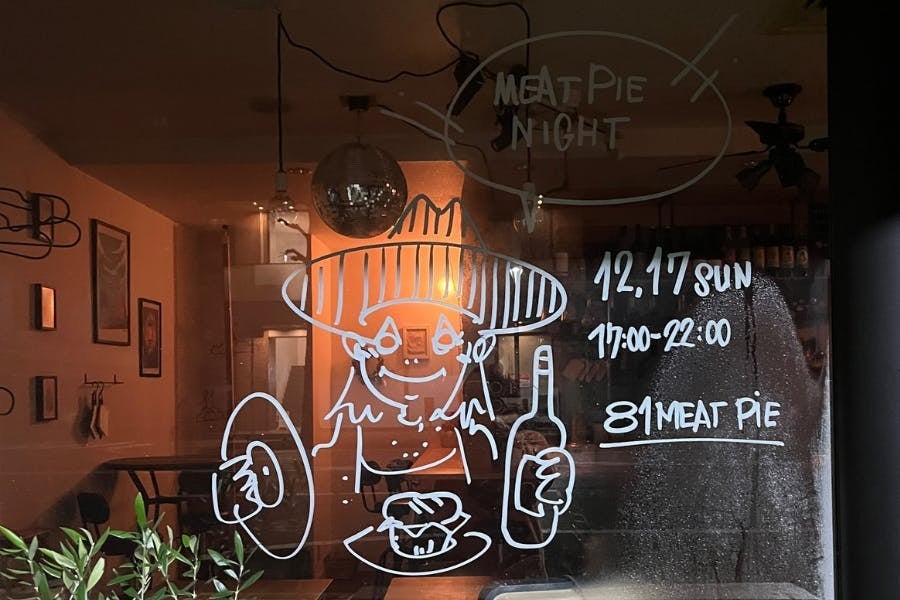 MEAT PIE
NIGHT
12,17 SUN
17:00-22:00
81 MEAT PiE